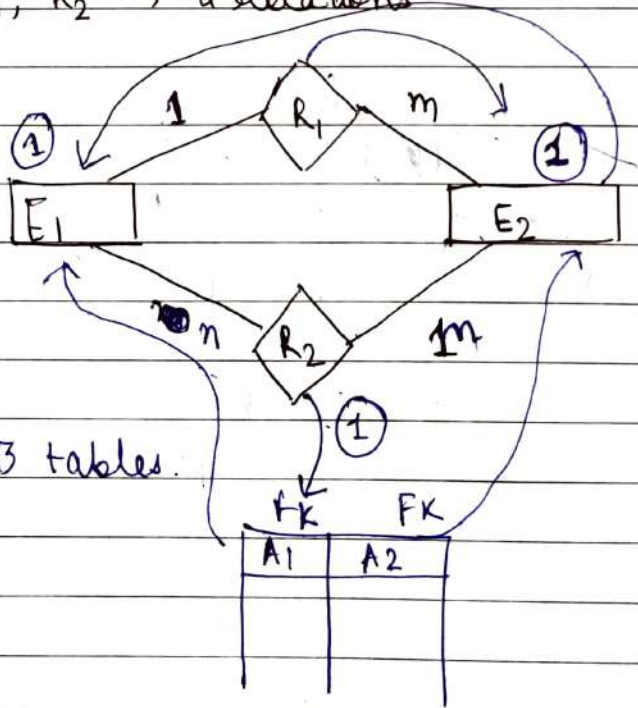 , R2
1 R1 m
1 1
E1 E2
n R2 m
1
3 tables.
FK FK
A1 A2